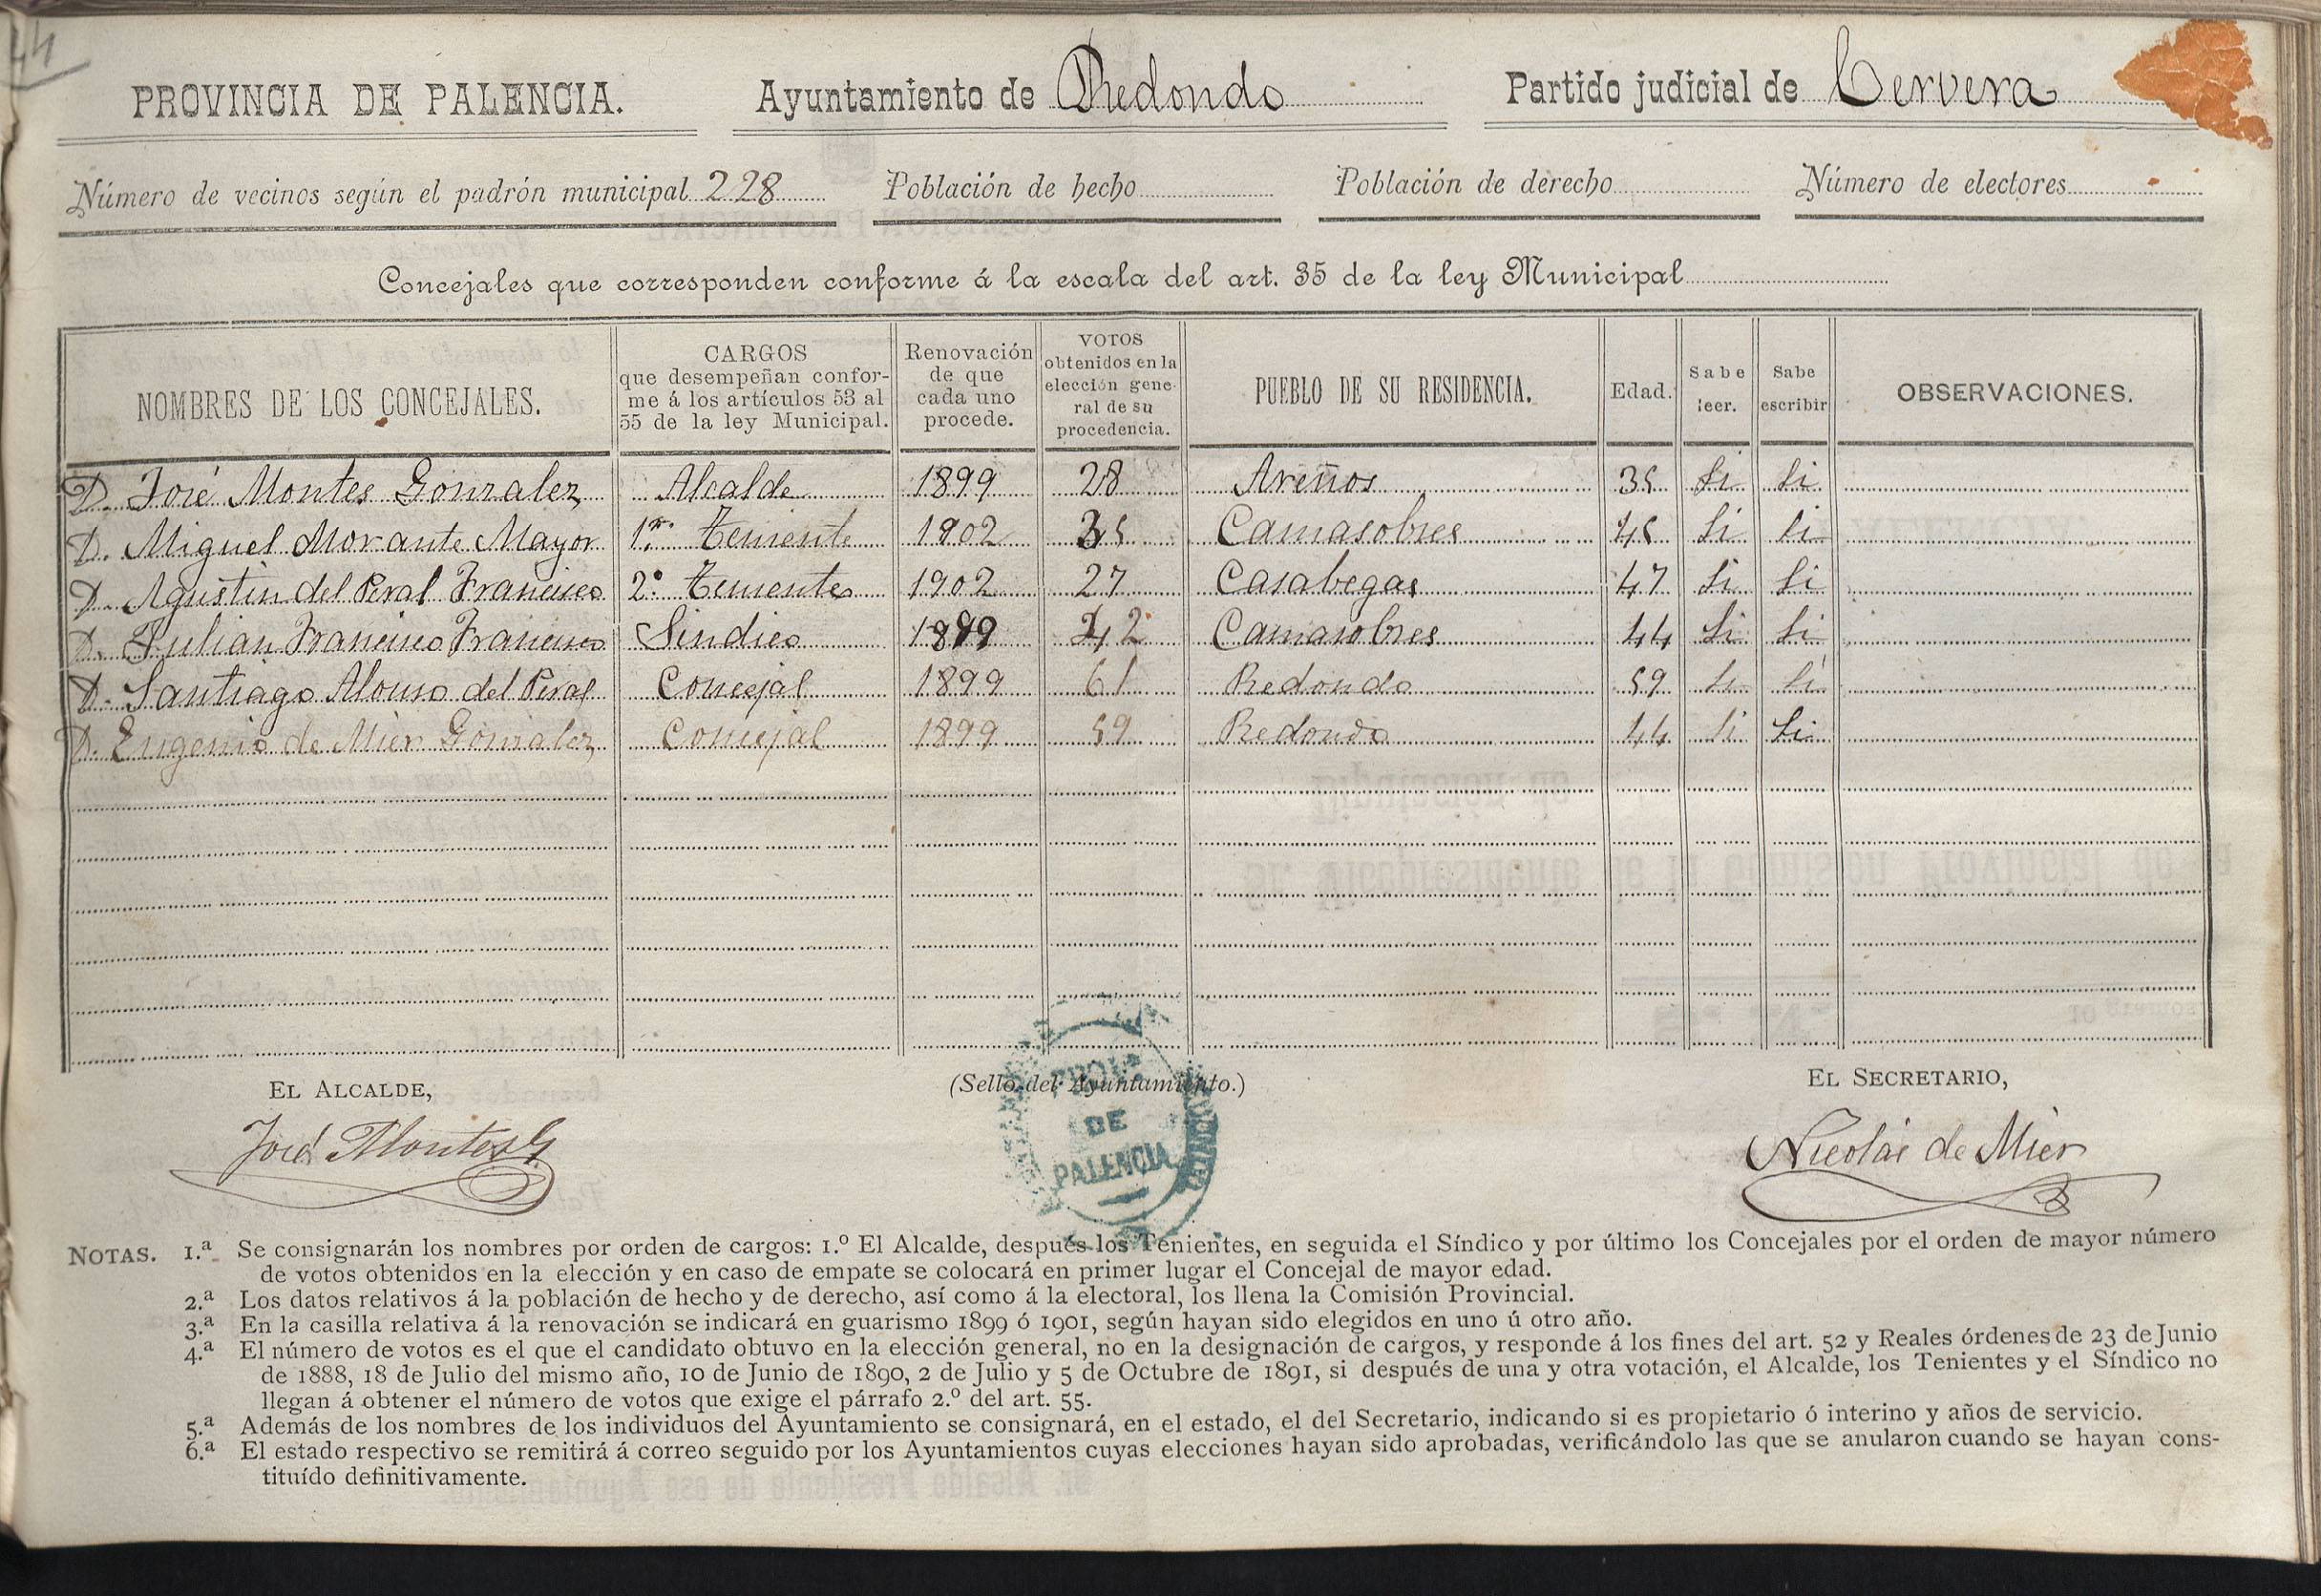 44
PROVINCIA DE PALENCIA. Ayuntamiento de Redondo Partido judicial de Cervera
Número de vecinos según el padrón municipal 228 Población de hecho Población de derecho Número de electores
Concejales que corresponden conforme á la escala del art. 35 de la ley Municipal
NOMBRES DE LOS CONCEJALES. CARGOS que desempeñan confor-me á los artículos 53 al 55 de la ley Municipal. Renovación de que cada uno procede. VOTOS obtenidos en la elección gene-ral de su procedencia. PUEBLO DE SU RESIDENCIA. Edad. Sabe leer. Sabe escribir OBSERVACIONES.
D. José Montes Gonzalez Alcalde 1899 28 Areños 35 Si Si
D. Miguel Morante Mayor 1er Teniente 1902 35 Camasobres 45 Si Si
D. Agustin del Peral Francisco 2º Teniente 1902 27 Casabegas 47 Si Si
D. Julian Francisco Francisco Sindico 1899 42 Camasobres 44 Si Si
D. Santiago Alonso del Peral Concejal 1899 61 Redondo 59 Si Si
D. Eugenio de Mier Gonzalez Concejal 1899 59 Redondo 44 Si Si
EL ALCALDE, (Sello del Ayuntamiento.) EL SECRETARIO,
José Montes G Nicolás de Mier
DE
PALENCIA
NOTAS. 1.ª Se consignarán los nombres por orden de cargos: 1.º El Alcalde, después los Tenientes, en seguida el Síndico y por último los Concejales por el orden de mayor número
de votos obtenidos en la elección y en caso de empate se colocará en primer lugar el Concejal de mayor edad.
2.ª Los datos relativos á la población de hecho y de derecho, así como á la electoral, los llena la Comisión Provincial.
3.ª En la casilla relativa á la renovación se indicará en guarismo 1899 ó 1901, según hayan sido elegidos en uno ú otro año.
4.ª El número de votos es el que el candidato obtuvo en la elección general, no en la designación de cargos, y responde á los fines del art. 52 y Reales órdenes de 23 de Junio
de 1888, 18 de Julio del mismo año, 10 de Junio de 1890, 2 de Julio y 5 de Octubre de 1891, si después de una y otra votación, el Alcalde, los Tenientes y el Síndico no
llegan á obtener el número de votos que exige el párrafo 2.º del art. 55.
5.ª Además de los nombres de los individuos del Ayuntamiento se consignará, en el estado, el del Secretario, indicando si es propietario ó interino y años de servicio.
6.ª El estado respectivo se remitirá á correo seguido por los Ayuntamientos cuyas elecciones hayan sido aprobadas, verificándolo las que se anularon cuando se hayan cons-
tituído definitivamente.